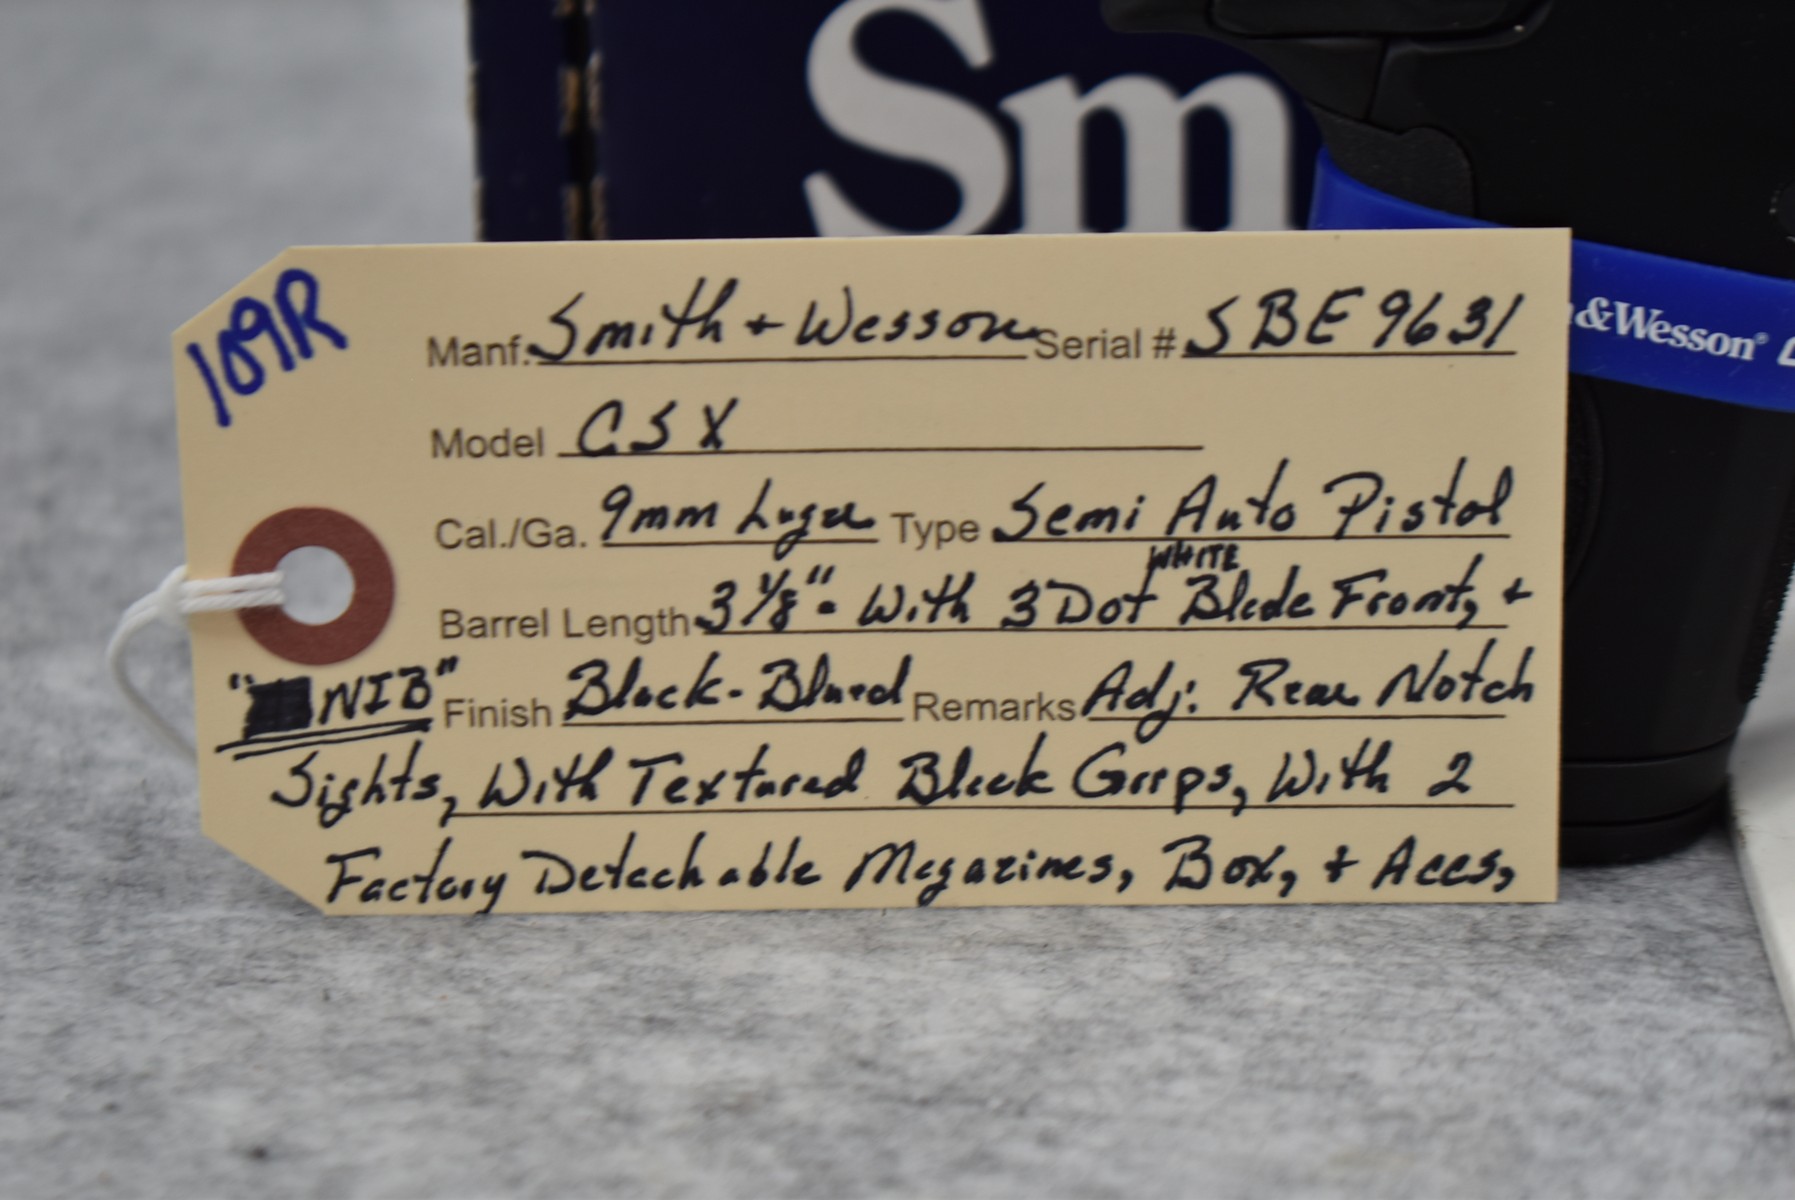 Sm
&Wesson®
109R
Manf. Smith + Wesson Serial # SBE 9631
Model CSX
Cal./Ga. 9mm Luger Type Semi Auto Pistol
WHITE
Barrel Length 3 1/8" - With 3 Dot Blade Front, +
"NIB" Finish Black-Blued Remarks Adj: Rear Notch
Sights, With Textured Black Grips, With 2
Factory Detachable Magazines, Box, + Accs,